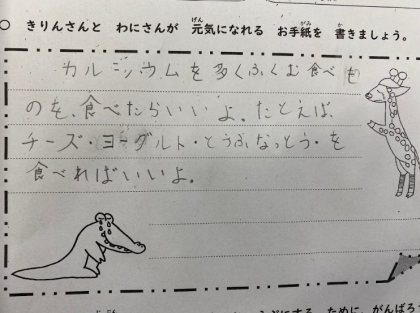 ○ きりんさんと わにさんが 元気になれる お手紙を 書きましょう。
カルシウムを多くふくむ食べも
のを、食べたらいいよ。たとえば
チーズ・ヨーグルト・とうふなっとう・を
食べればいいよ。
ために、がんばろう